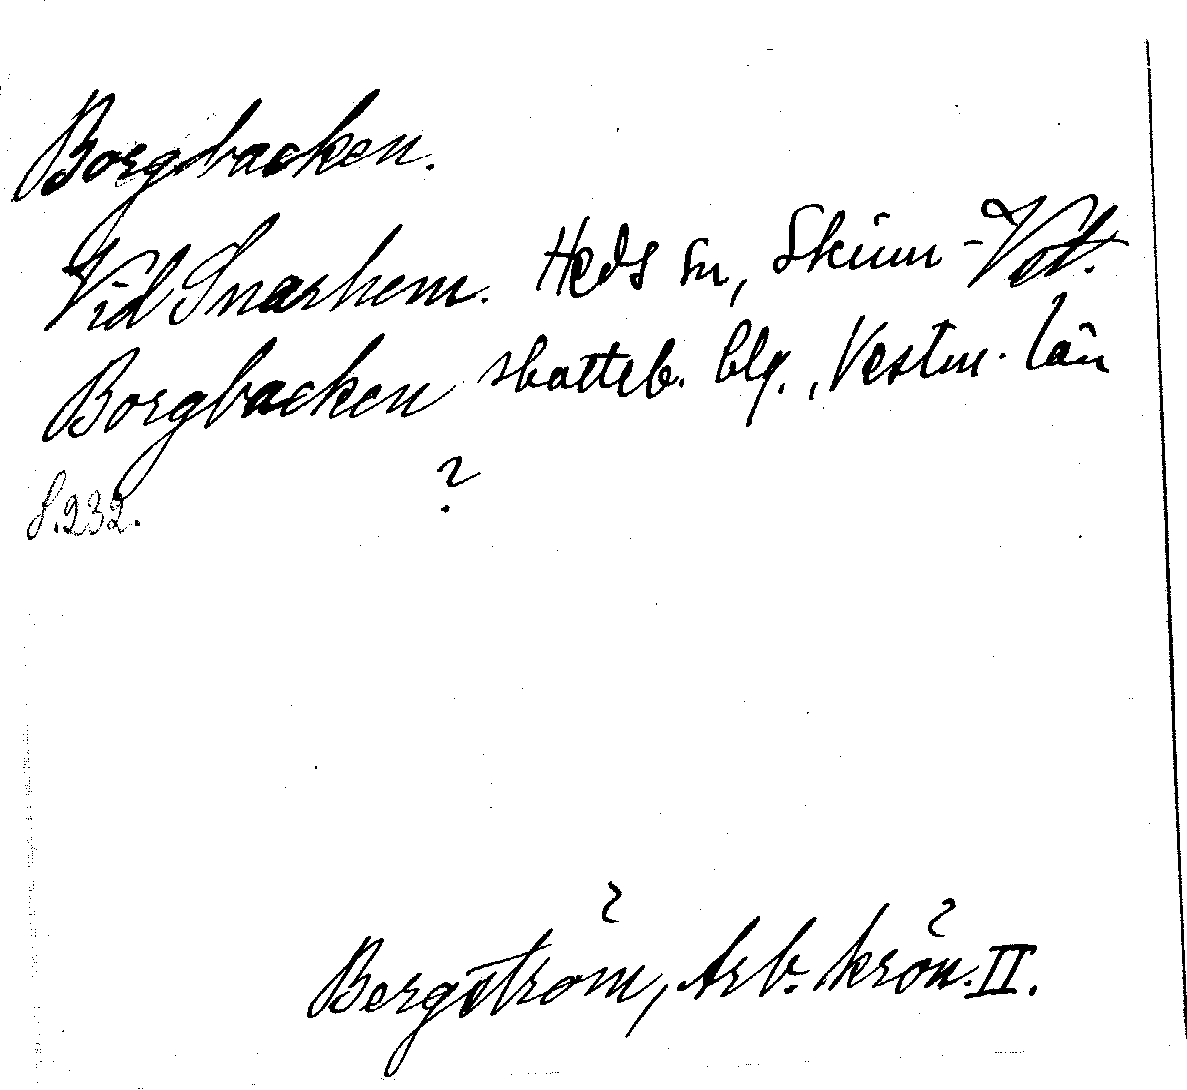 Borgbacken.
Vid Snarhem. Heds sn, Skinn-
Borgbacken skatteb. blg., Vestm. län
S. 232. ?
Bergström, Arb. krön. II.